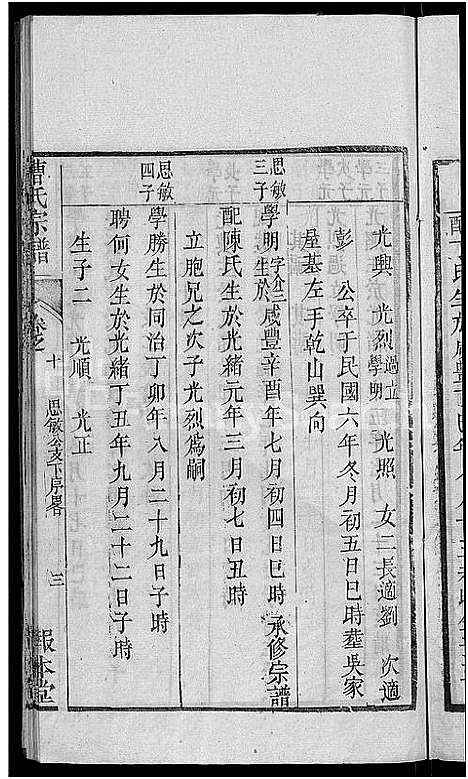 光興　光烈過立學明　光照　女二長適劉　次適
彭　公卒于民國六年冬月初五日巳時塟吳家
屋基左壬乾山巽向
思敏三子 學明字介三生於咸豐辛酉年七月初四日巳時承修宗譜
配陳氏生於光緒元年三月初七日丑時
立胞兄之次子光烈為嗣
思敏四子 學勝生於同治丁卯年八月二十九日子時
聘何女生於光緒丁丑年九月二十二日子時
生子二　光順　光正
曹氏宗譜　卷之十　思敏公支下序畧　三　報本堂